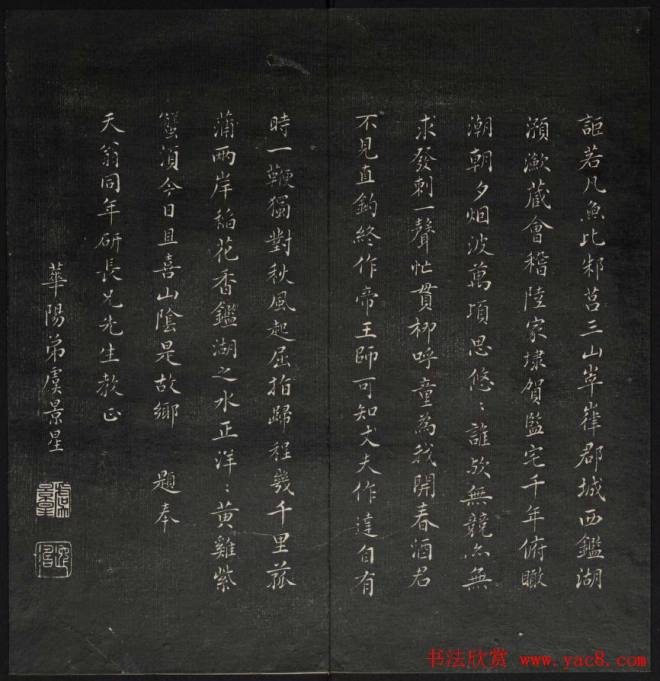 詎若凡魚比邾莒三山崒嵂郡城西鑑湖
澦漵蔵會稽陸家埭賀監宅千年俯瞰
潮朝夕烟波萬頃思悠〻誰歟無競亦無
求發剌一聲忙貫柳呼童為我開春酒君
不見直鈎終作帝王師可知丈夫作達自有
時一鞭獨對秋風起屈指歸程幾千里菰
蒲兩岸稻花香鑑湖之水正洋〻黄雞紫
蟹須今日且喜山陰是故鄉 題奉
天翁同年研長兄先生教正
華陽弟虞景星
书法欣赏 www.yac8.com